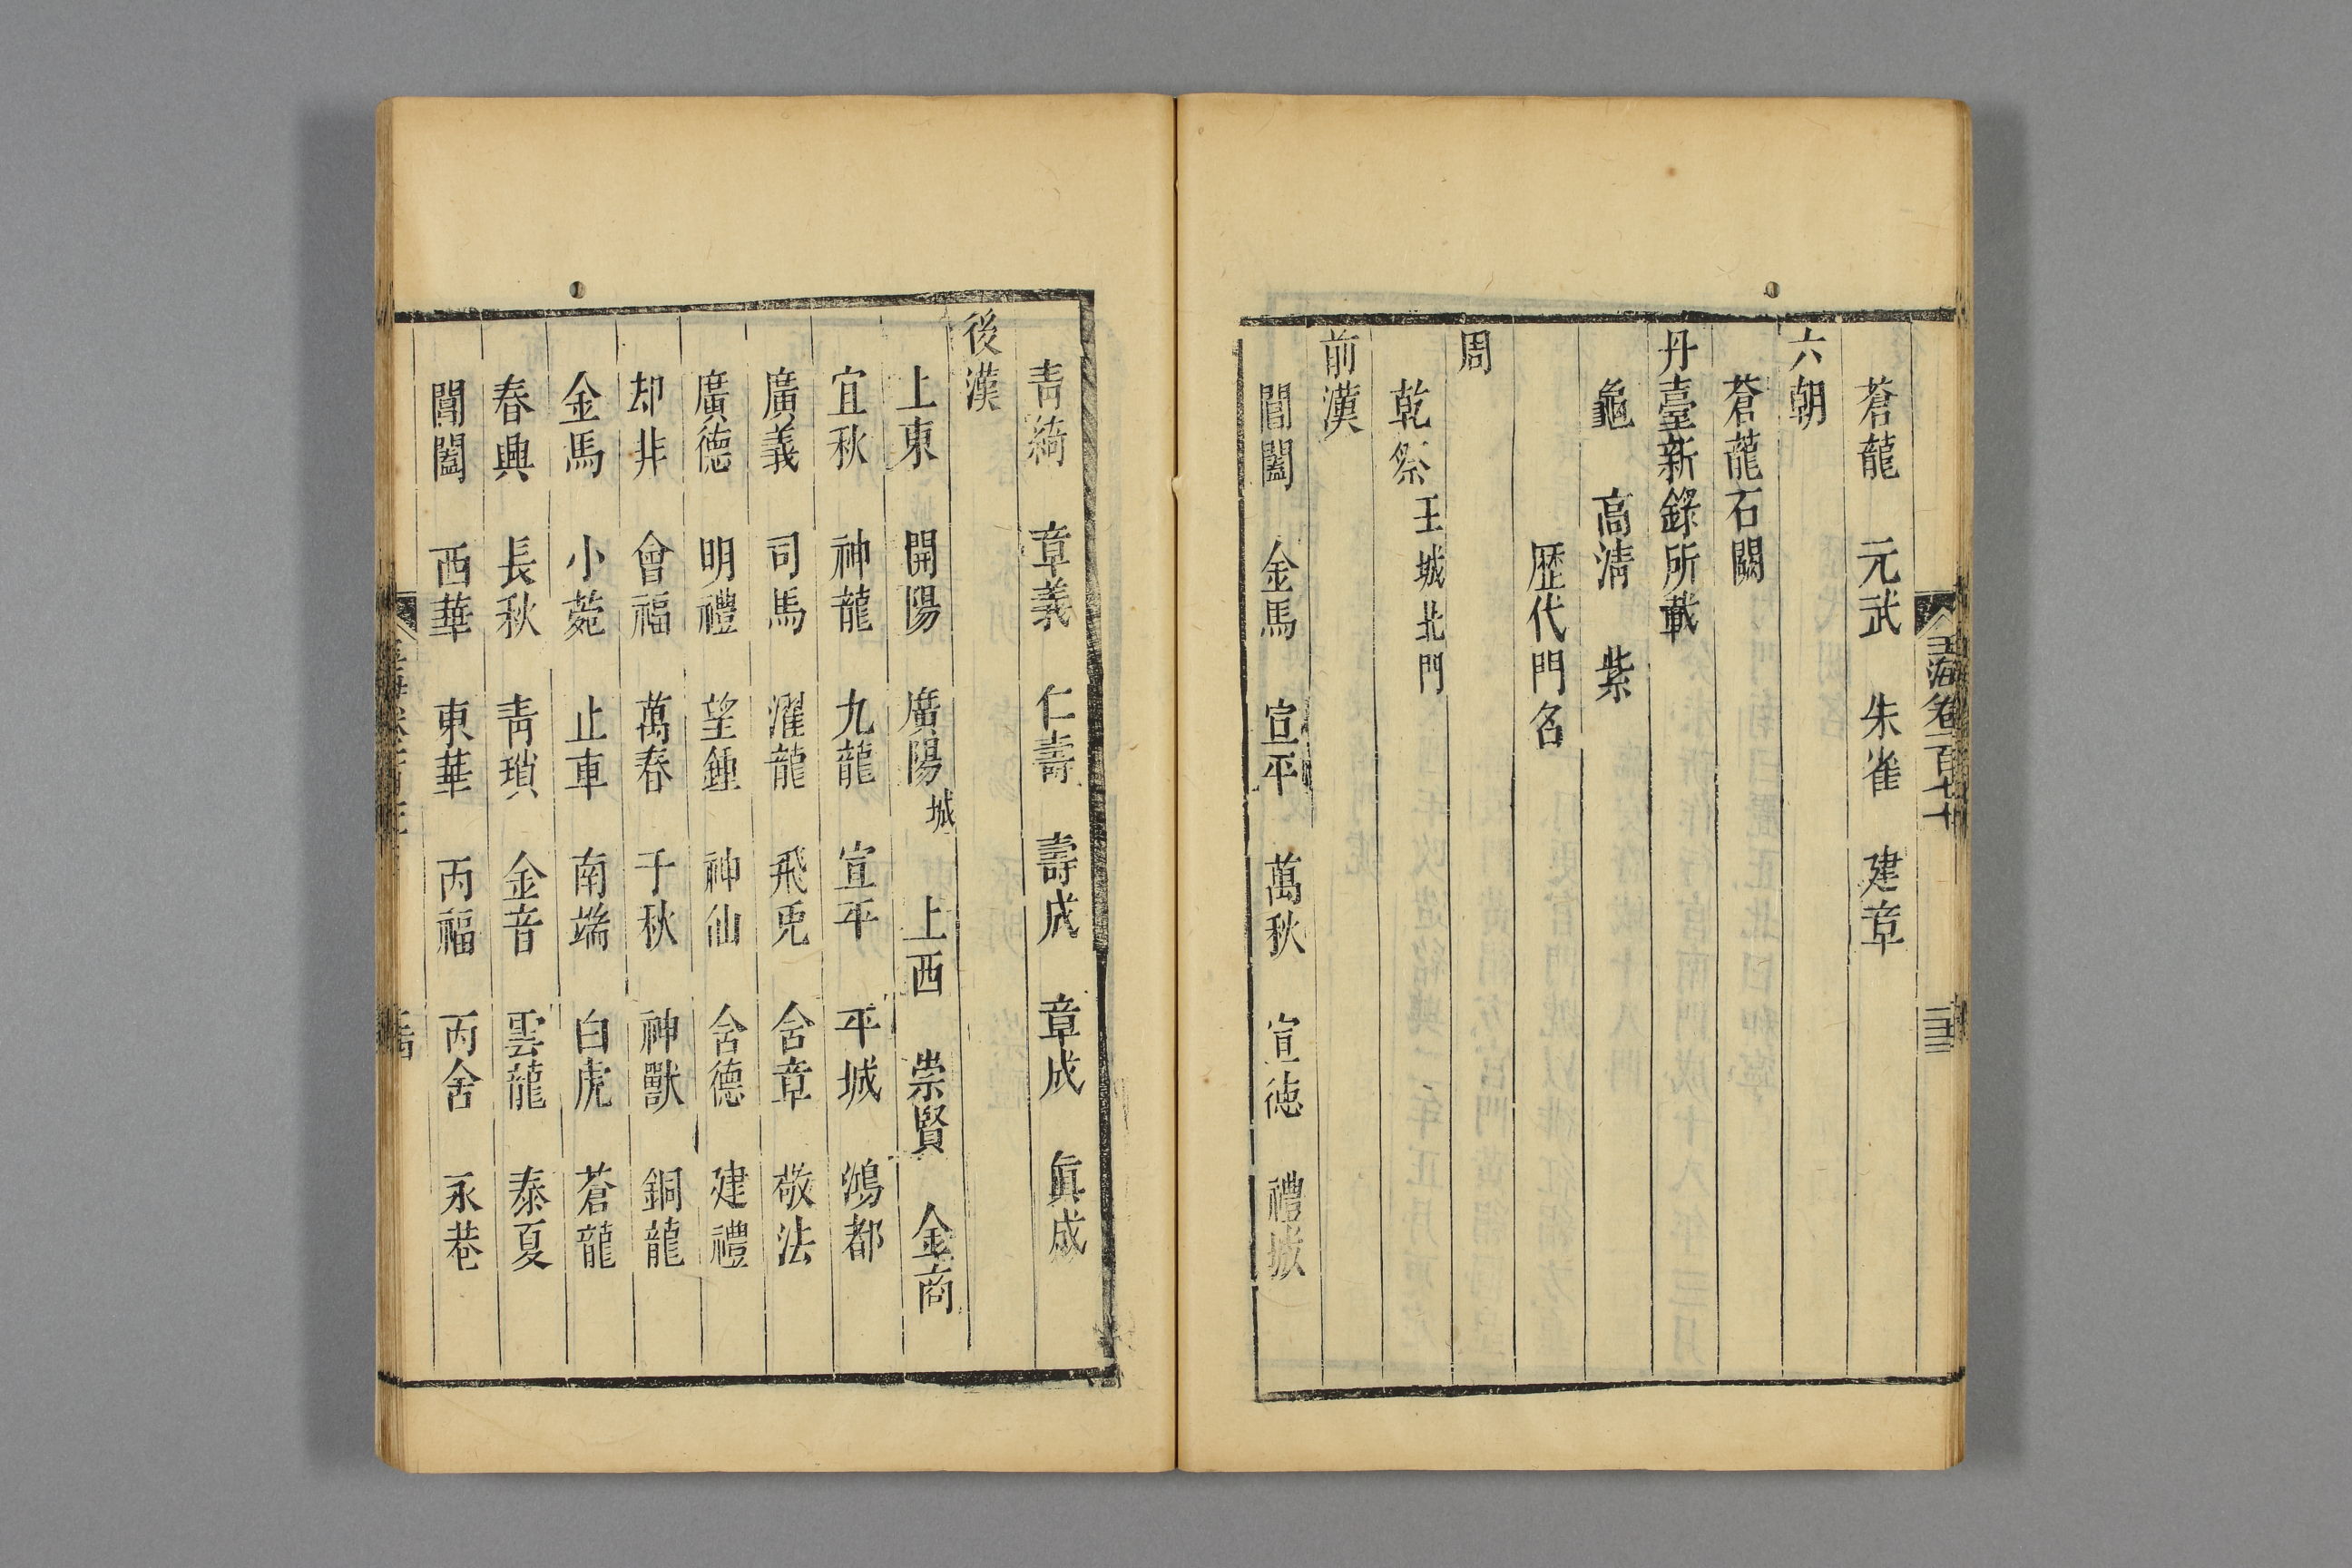 玉海卷一百七十
蒼龍　元武　朱雀　建章
六朝
蒼龍石闕
丹臺新錄所載
龜　高清　紫
歷代門名
周
乾祭王城北門
前漢
閶闔　金馬　宣平　萬秋　宣德　禮城
青綺　章義　仁壽　壽成　章成　眞成
後漢
上東　開陽　廣陽城　上西　崇賢　金商
宜秋　神龍　九龍　宣平　平城　鴻都
廣義　司馬　濯龍　飛兎　含章　敬法
廣德　明禮　望鍾　神仙　含德　建禮
却非　會福　萬春　千秋　神獸　銅龍
金馬　小苑　止車　南端　白虎　蒼龍
春興　長秋　青瑣　金音　雲龍　泰夏
閶闔　西華　東華　丙福　丙舍　永巷